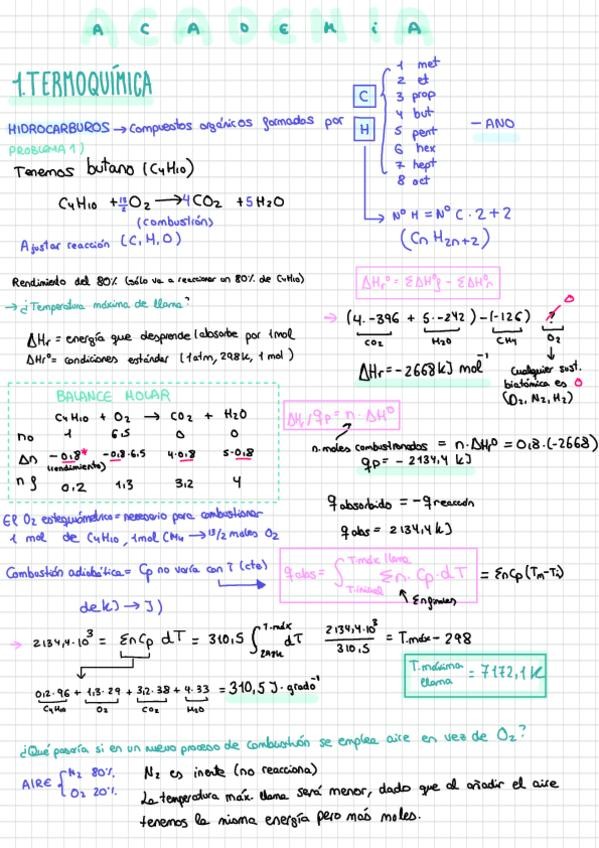 ACADEMiA
1.TERMOQUÍMICA
HIDROCARBUROS → Compuestos orgánicos formados por
C
H
1 met
2 et
3 prop
4 but
5 pent
6 hex
7 hept
8 oct
- ANO
Nº H = Nº C · 2 + 2
(Cn H2n+2)
PROBLEMA 1)
Tenemos butano (C4H10)
C4H10 + 13/2 O2 → 4CO2 + 5H2O
(combustión)
Ajustar reacción (C, H, O)
Rendimiento del 80% (sólo va a reaccionar un 80% de C4H10)
→ ¿Temperatura máxima de llama?
ΔHr = energía que desprende/absorbe por 1 mol
ΔHrº = condiciones estándar (1atm, 298K, 1 mol)
ΔHrº = ΣΔHºf - ΣΔHºr
→ (4·-396 + 5·-242) - (-126) ? 0
CO2 H2O CH4 O2
ΔHr = -2668 kJ mol⁻¹
Cualquier sust.
biatómica es 0
(O2, N2, H2)
BALANCE MOLAR
C4H10 + O2 → CO2 + H2O
no 1 6,5 0 0
Δn -0,8* -0,8·6,5 4·0,8 5·0,8
(rendimiento)
nf 0,2 1,3 3,2 4
ΔHr/qp = n·ΔHº
n.moles combustionados = n·ΔHrº = 0,8·(-2668)
qp = -2134,4 kJ
q absorbido = -q reacción
q abs = 2134,4 kJ
El O2 estequiométrico = necesario para combustionar
1 mol de C4H10, 1mol CH4 → 13/2 moles O2
Combustión adiabática = Cp no varía con T (cte)
q abs = ∫ T.máx llama T.inicial Σn·Cp·dT = ΣnCp(Tm-Ti)
de kJ → J)
→ 2134,4·10³ = ΣnCp dT = 310,5 ∫ T.máx 298K dT 2134,4·10³/310,5 = T.máx - 298
0,2·96 + 1,3·29 + 3,2·38 + 4·33 = 310,5 J·grado⁻¹
C4H10 O2 CO2 H2O
T.máxima llama = 7172,1 K
¿Qué pasaría si en un nuevo proceso de combustión se emplea aire en vez de O2?
AIRE { N2 80% O2 20%
N2 es inerte (no reacciona)
La temperatura máx. llama será menor, dado que al añadir el aire
tenemos la misma energía pero más moles.